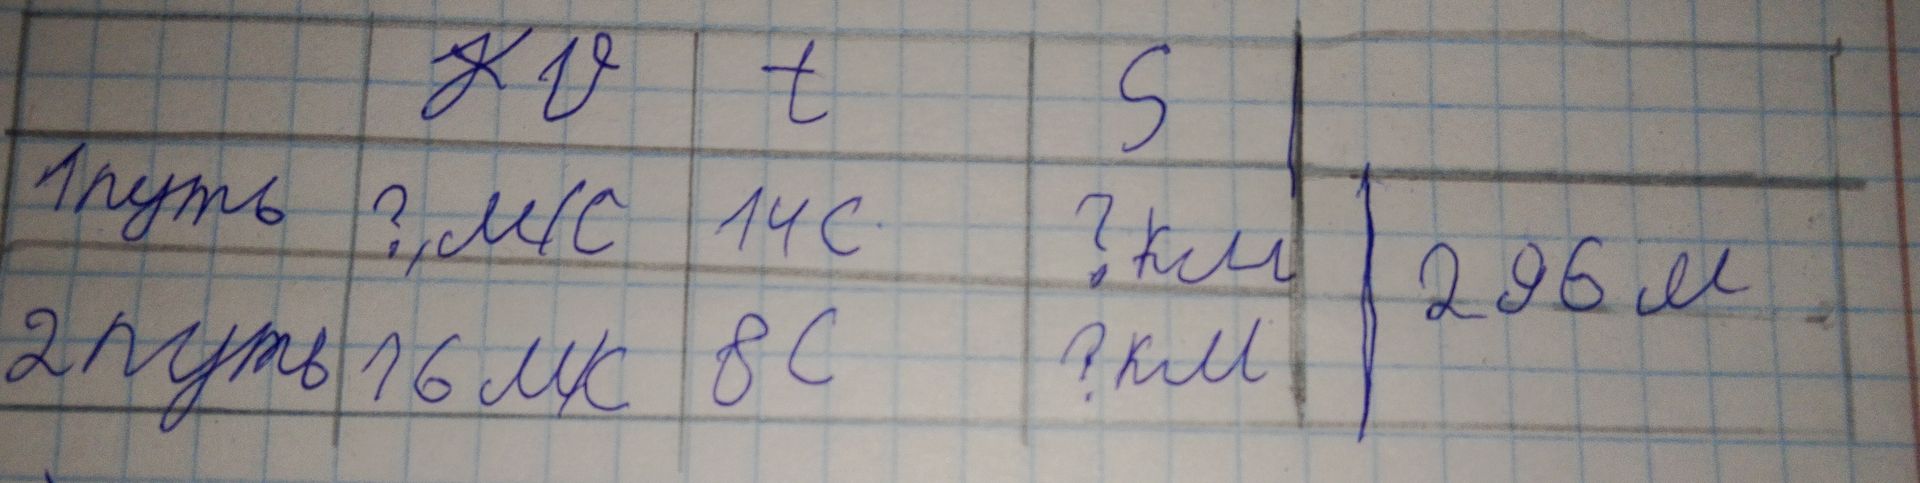 V t S
1 путь ? м/с 14 с ? км
296 м
2 путь 16 м/с 8 с ? км